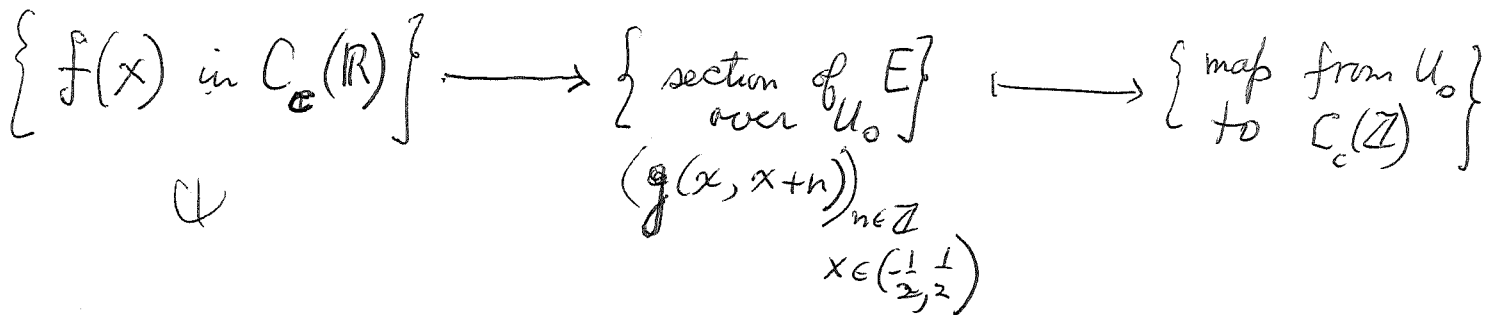 { f(x) in C_c(ℝ) } ⟶ { section of E over U₀ } ⟼ { map from U₀ to C_c(ℤ) }
ψ (g(x, x+n))_{n∈ℤ}
x∈(-1/2, 1/2)